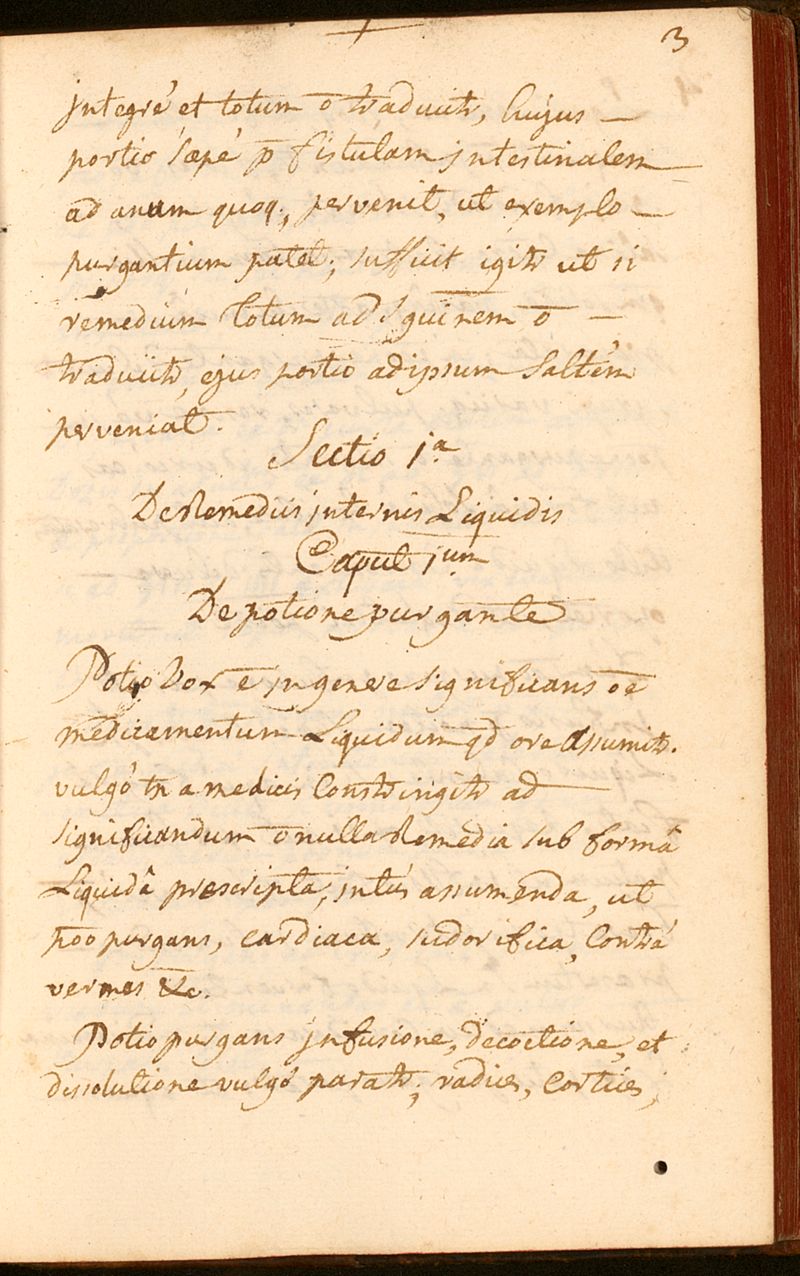 3
integré et totum ō traducitr, hujus —
portio sæpé p̄ fistulam intestinalem
ad anum quoq;, pervenit, ut exemplo —
purgantium patet; sufficit igitr ut si
remedium totum ad sg̅uinem ō —
traducitr, ejus portio ad ipsum saltém
perveniat.
Sectio 1a
De Remediis internis Liquidis
Caput 1um
De potione purgante
Potio vox ē in genere significans oē
medicamentum Liquidum qd ore assumitr.
vulgó tn a medicis Constringitr ad
significandum ōnulla Remedia sub formâ
Liquidâ prescripta, intús assumenda, ut
p̄oo purgans, cardiaca, sudorifica, Contrá
vermes &c.
Potio purgans infusione, decoctione, et
dissolutione vulgó paratr; radices, Cortices,